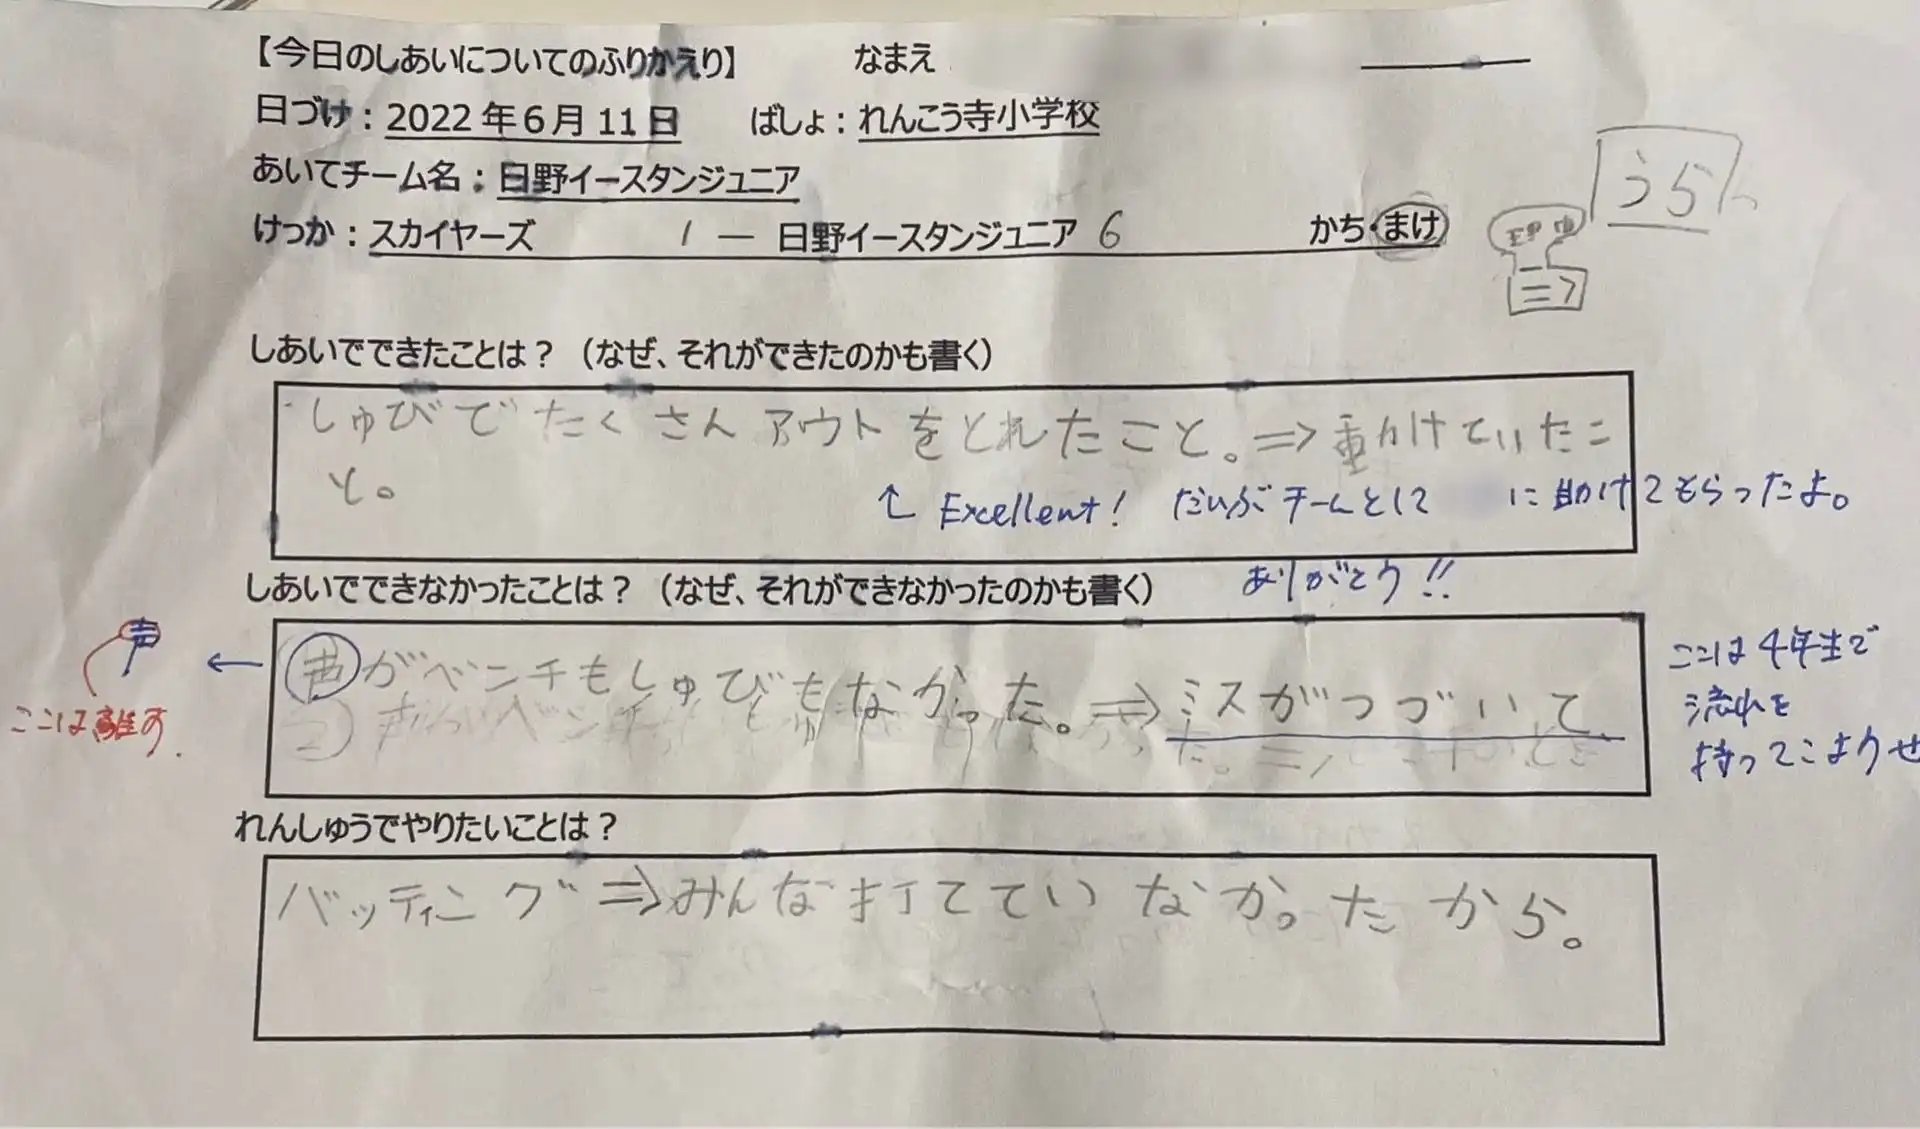 【今日のしあいについてのふりかえり】 なまえ
日づけ：2022年6月11日 ばしょ：れんこう寺小学校
あいてチーム名：日野イースタンジュニア
けっか：スカイヤーズ 1 ― 日野イースタンジュニア 6 かち・まけ
うら
しあいでできたことは？（なぜ、それができたのかも書く）
・しゅびでたくさんアウトをとれたこと。⇒動けていたこ
と。
↑ Excellent! だいぶチームとして に助けてもらったよ。
ありがとう!!
しあいでできなかったことは？（なぜ、それができなかったのかも書く）
声がベンチもしゅびもなかった。⇒ミスがつづいて
← 声
ここは離す.
ここは4年生で
流れを
持ってこようぜ
れんしゅうでやりたいことは？
バッティング⇒みんな打てていなかったから。